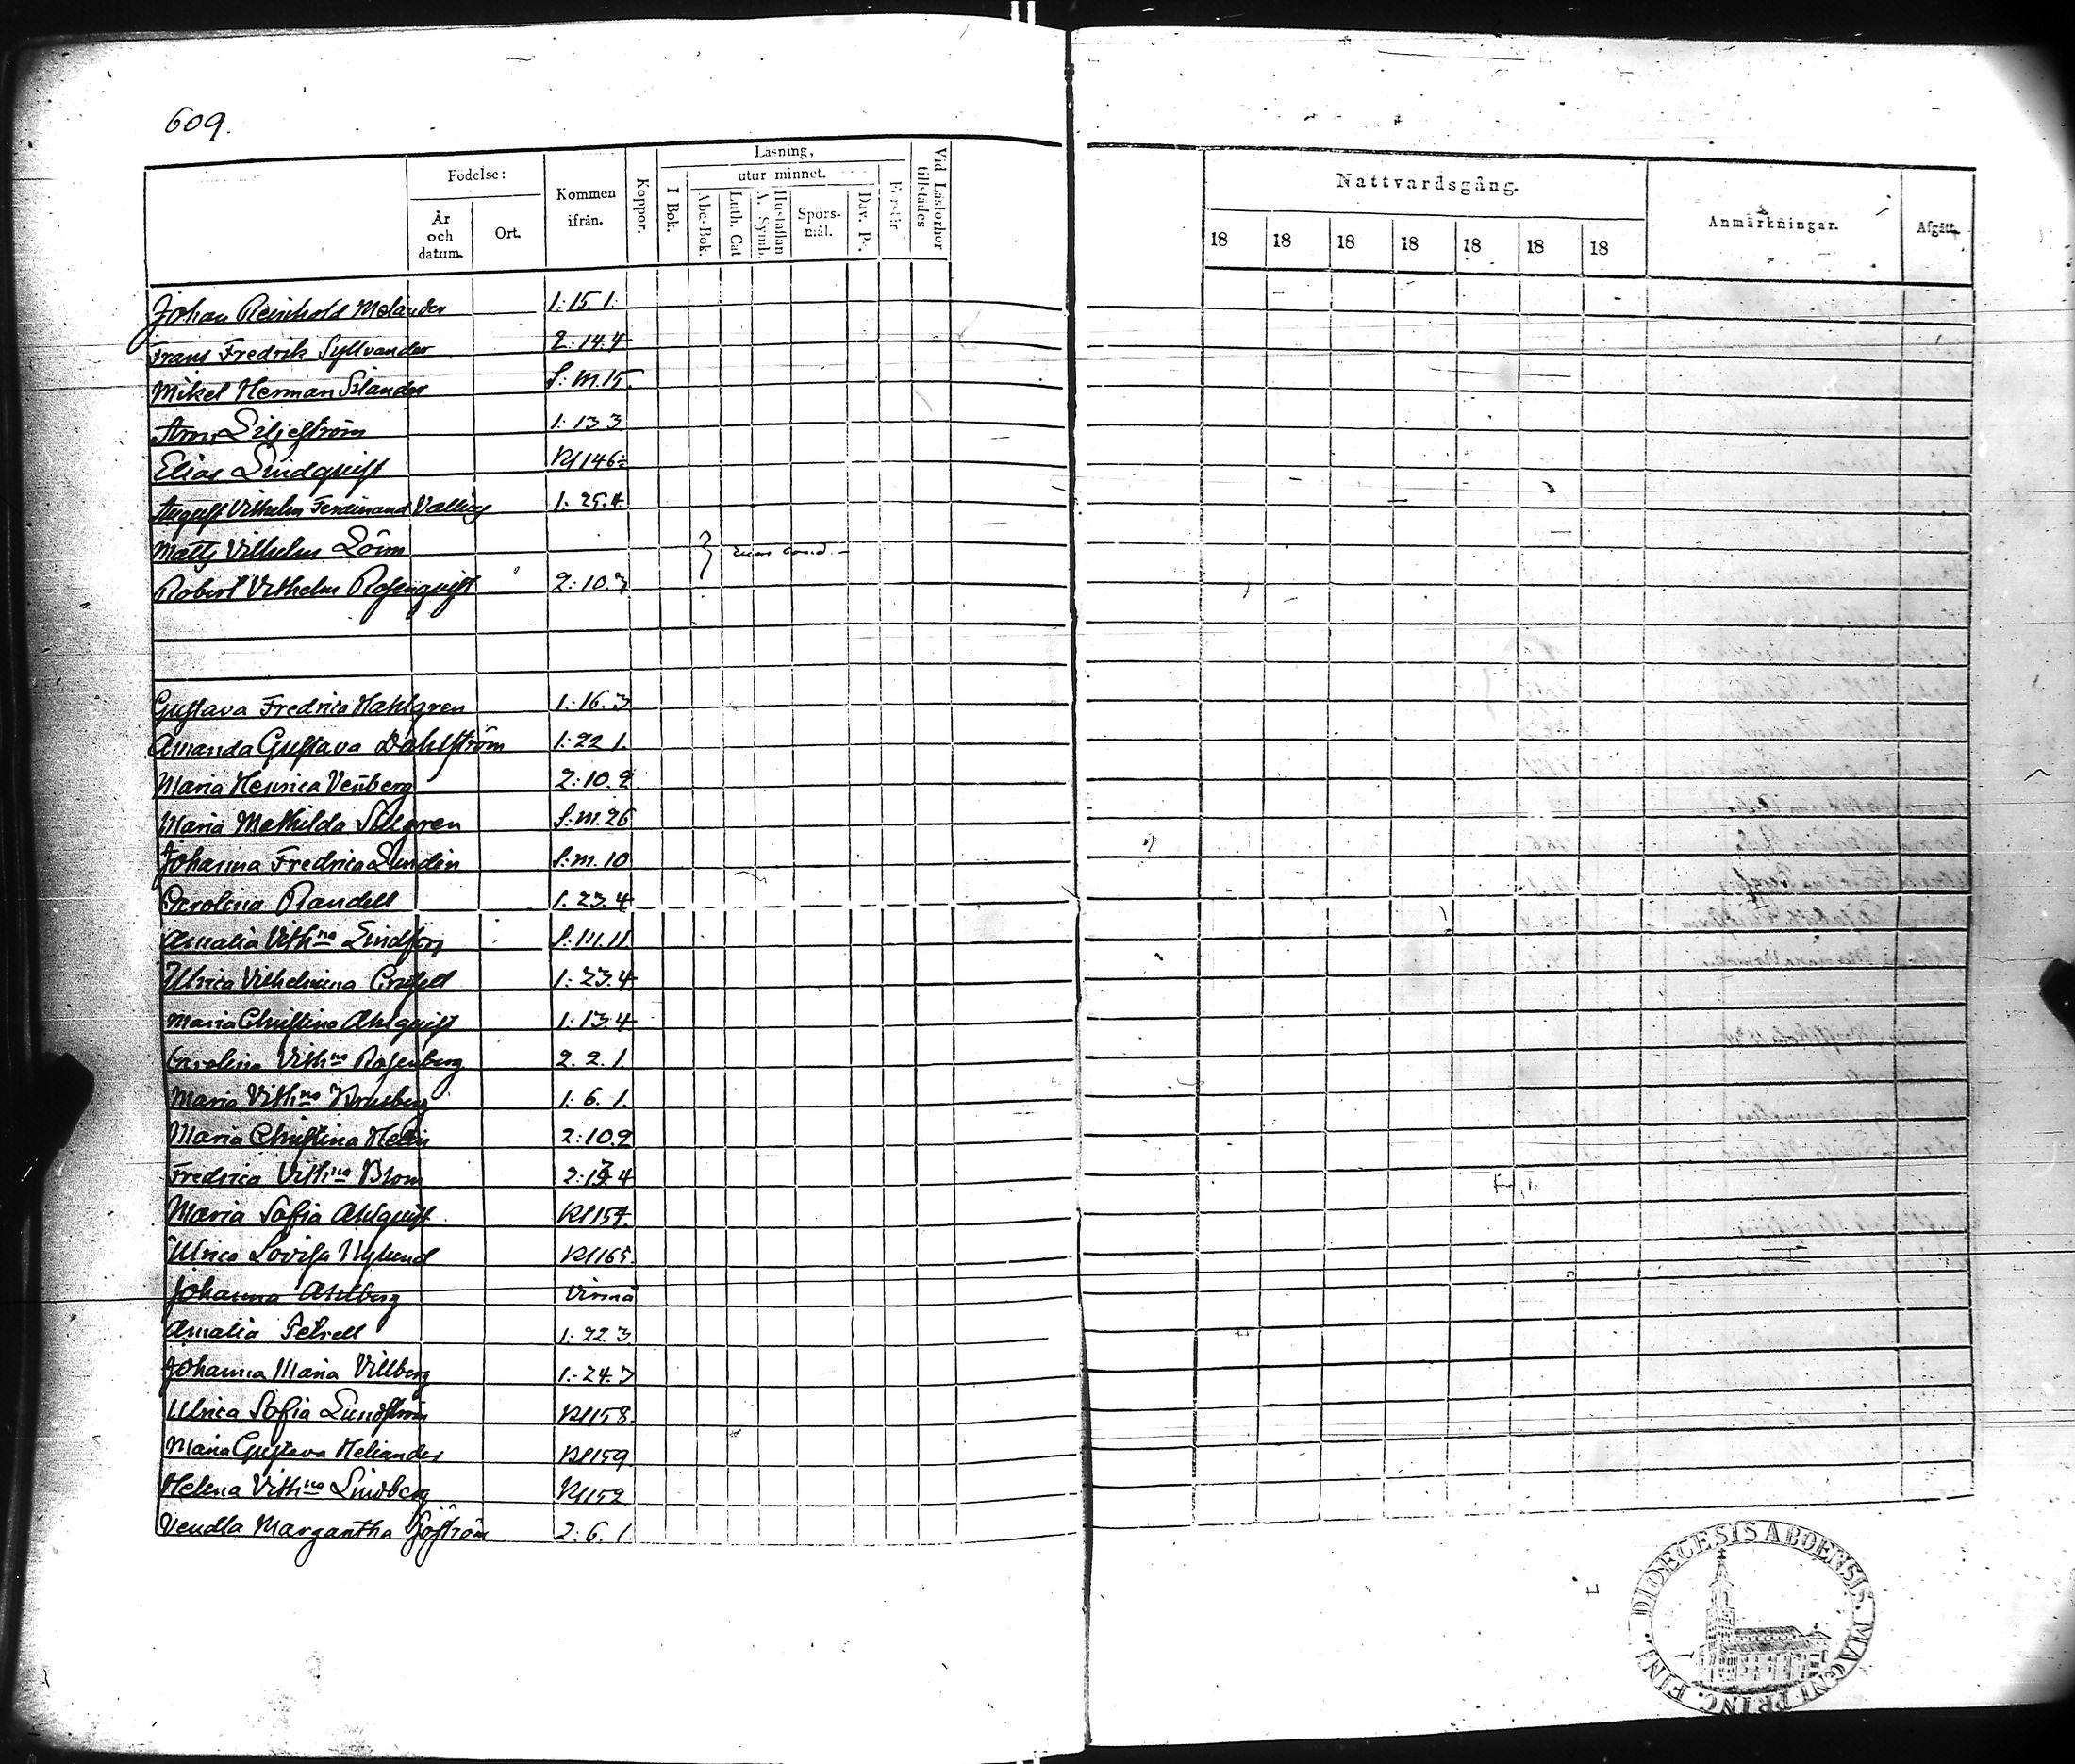 609.
Födelse:
År och datum.
Ort.
Kommen ifrån.
Koppor.
Läsning,
I Bok.
utur minnet.
Abc-Bok.
Luth. Cat
Hustaflan A. Symb.
Spörs-mål.
Dav. Ps.
Förstår
Vid Läsförhör tillstädes
Nattvardsgång.
18 18 18 18 18 18 18
Anmärkningar.
Afgått.
Johan Reinhold Melander 1:15.1.
Frans Fredrik Syllvander 2:14.4
Mikel Herman Silander S:m.15.
Aron Liljeström 1:13.3
Elias Lindquist Rf146
August Vilhelm Ferdinand Vallin 1.25.4.
Matts Vilhelm Löim
Robert Vilhelm Rosenquist 2:10.3
Gustava Fredrica Hahlgren 1:16.3
Amanda Gustava Dahlström 1:22 1.
Maria Henrica Venberg 2:10.2
Maria Mathilda Selgren S:m.26
Johanna Fredrica Lundin S:m.10
Carolina Randell 1.23.4
Amalia Vilhna Lindfors S:m.11
Ulrica Vilhelmina 1:23.4
Maria Christina Ahlquist 1:13.4
Carolina Vilhna Rosenberg 2.2.1.
Maria Vilhna 1.6.1.
Maria Christina Helin 2:10.2
Fredrica Vilhna Blom
Maria Sofia Ahlquist Rf154.
Ulrica Lovisa Nylund Rf165.
Johanna Ahlberg Virmå
Amalia Petrell 1.22.3
Johanna Maria Villberg 1.24.3
Ulrica Sofia Lundström Rf158.
Maria Gustava Heliander Rf159.
Helena Vilhna Lindberg Rf152
Vendla Margaretha Sjöström 2:6.1.
DIOECESIS ABOENSIS. MAGNI PRINC. FINL.